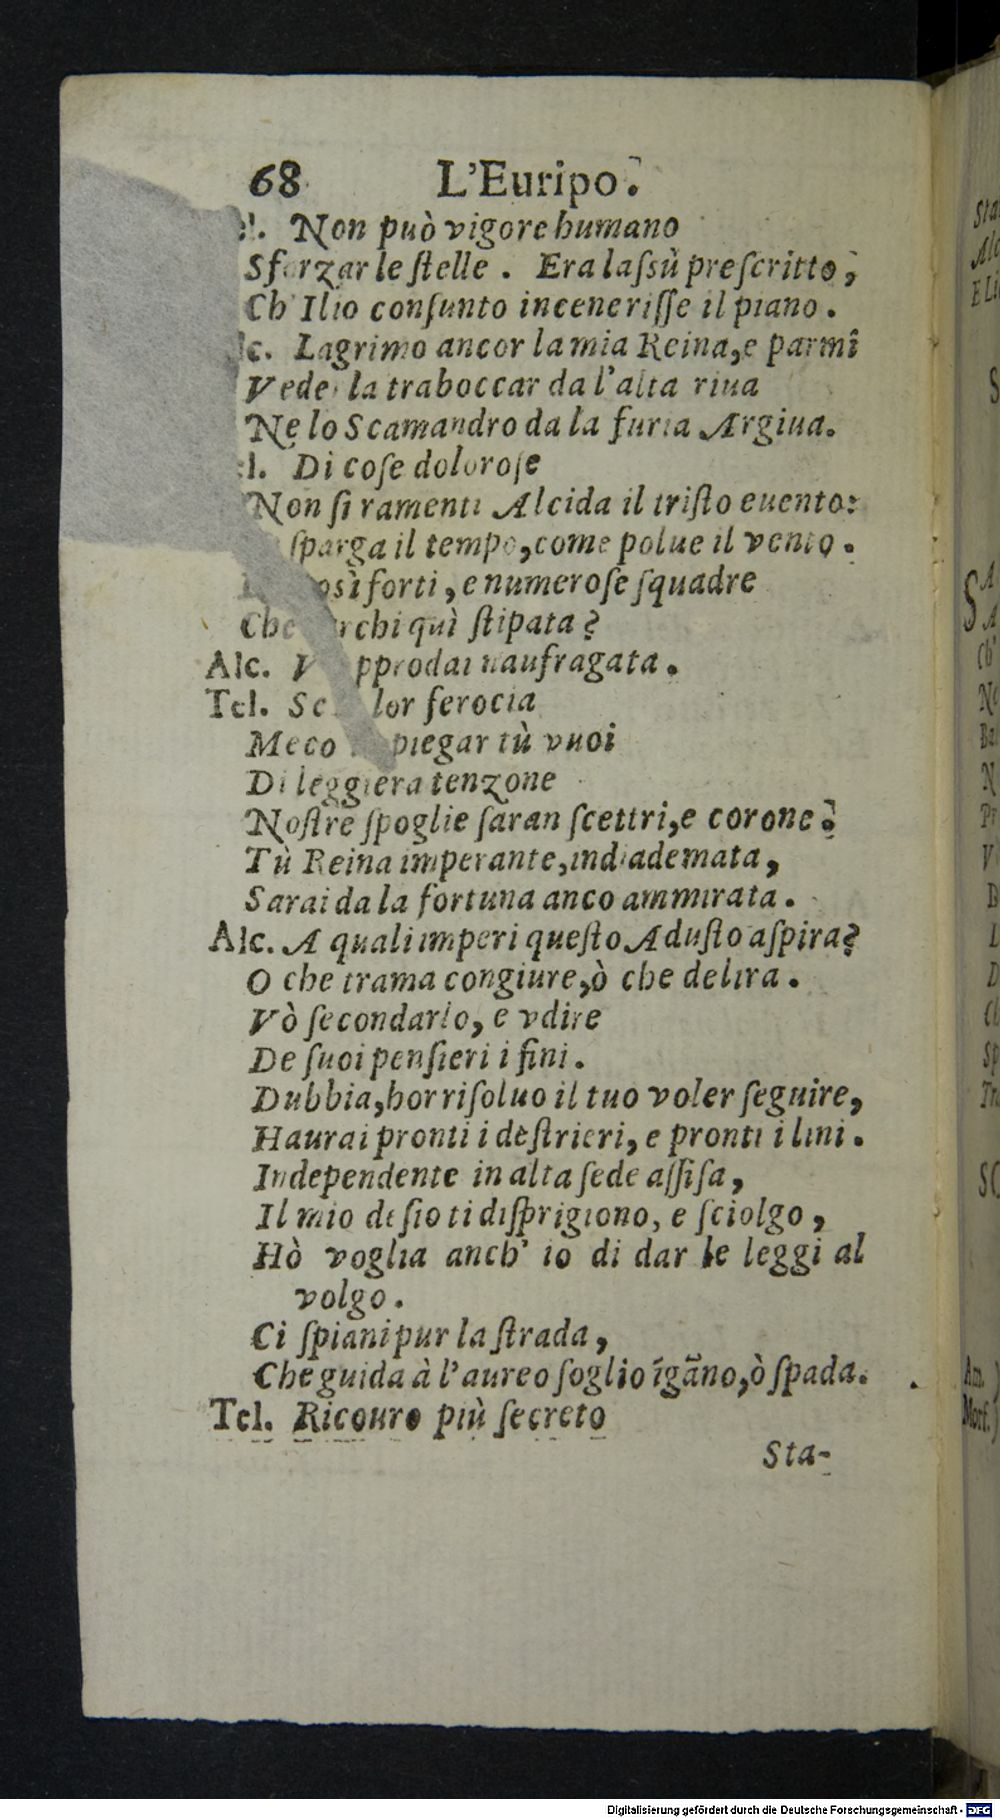 68 L'Euripo.
el. Non può vigore humano
Sforzar le ſtelle. Era laſsù preſcritto,
Ch'Ilio conſunto inceneriſſe il piano.
lc. Lagrimo ancor la mia Reina, e parmi
Veder la traboccar da l'alta riua
Ne lo Scamandro da la furia Argiua.
el. Di coſe doloroſe
Non ſi ramenti Alcida il triſto euento:
ſparga il tempo, come polue il vento.
osì forti, e numeroſe ſquadre
Che rchi quì ſtipata?
Alc. V pprodai naufragata.
Tel. Se lor ferocia
Meco piegar tù vuoi
Di leggiera tenzone
Noſtre ſpoglie ſaran ſcettri, e corone.
Tù Reina imperante, indiademata,
Sarai da la fortuna anco ammirata.
Alc. A quali imperi queſto Aduſto aſpira?
O che trama congiure, ò che delira.
Vò ſecondarlo, e vdire
De ſuoi penſieri i fini.
Dubbia, hor riſoluo il tuo voler ſeguire,
Haurai pronti i deſtrieri, e pronti i lini.
Independente in alta ſede aſſiſa,
Il mio deſio ti diſprigiono, e ſciolgo,
Hò voglia anch' io di dar le leggi al
volgo.
Ci ſpiani pur la ſtrada,
Che guida à l'aureo ſoglio īgāno, ò ſpada.
Tel. Ricouro più ſecreto
Sta-
Digitalisierung gefördert durch die Deutsche Forschungsgemeinschaft - DFG